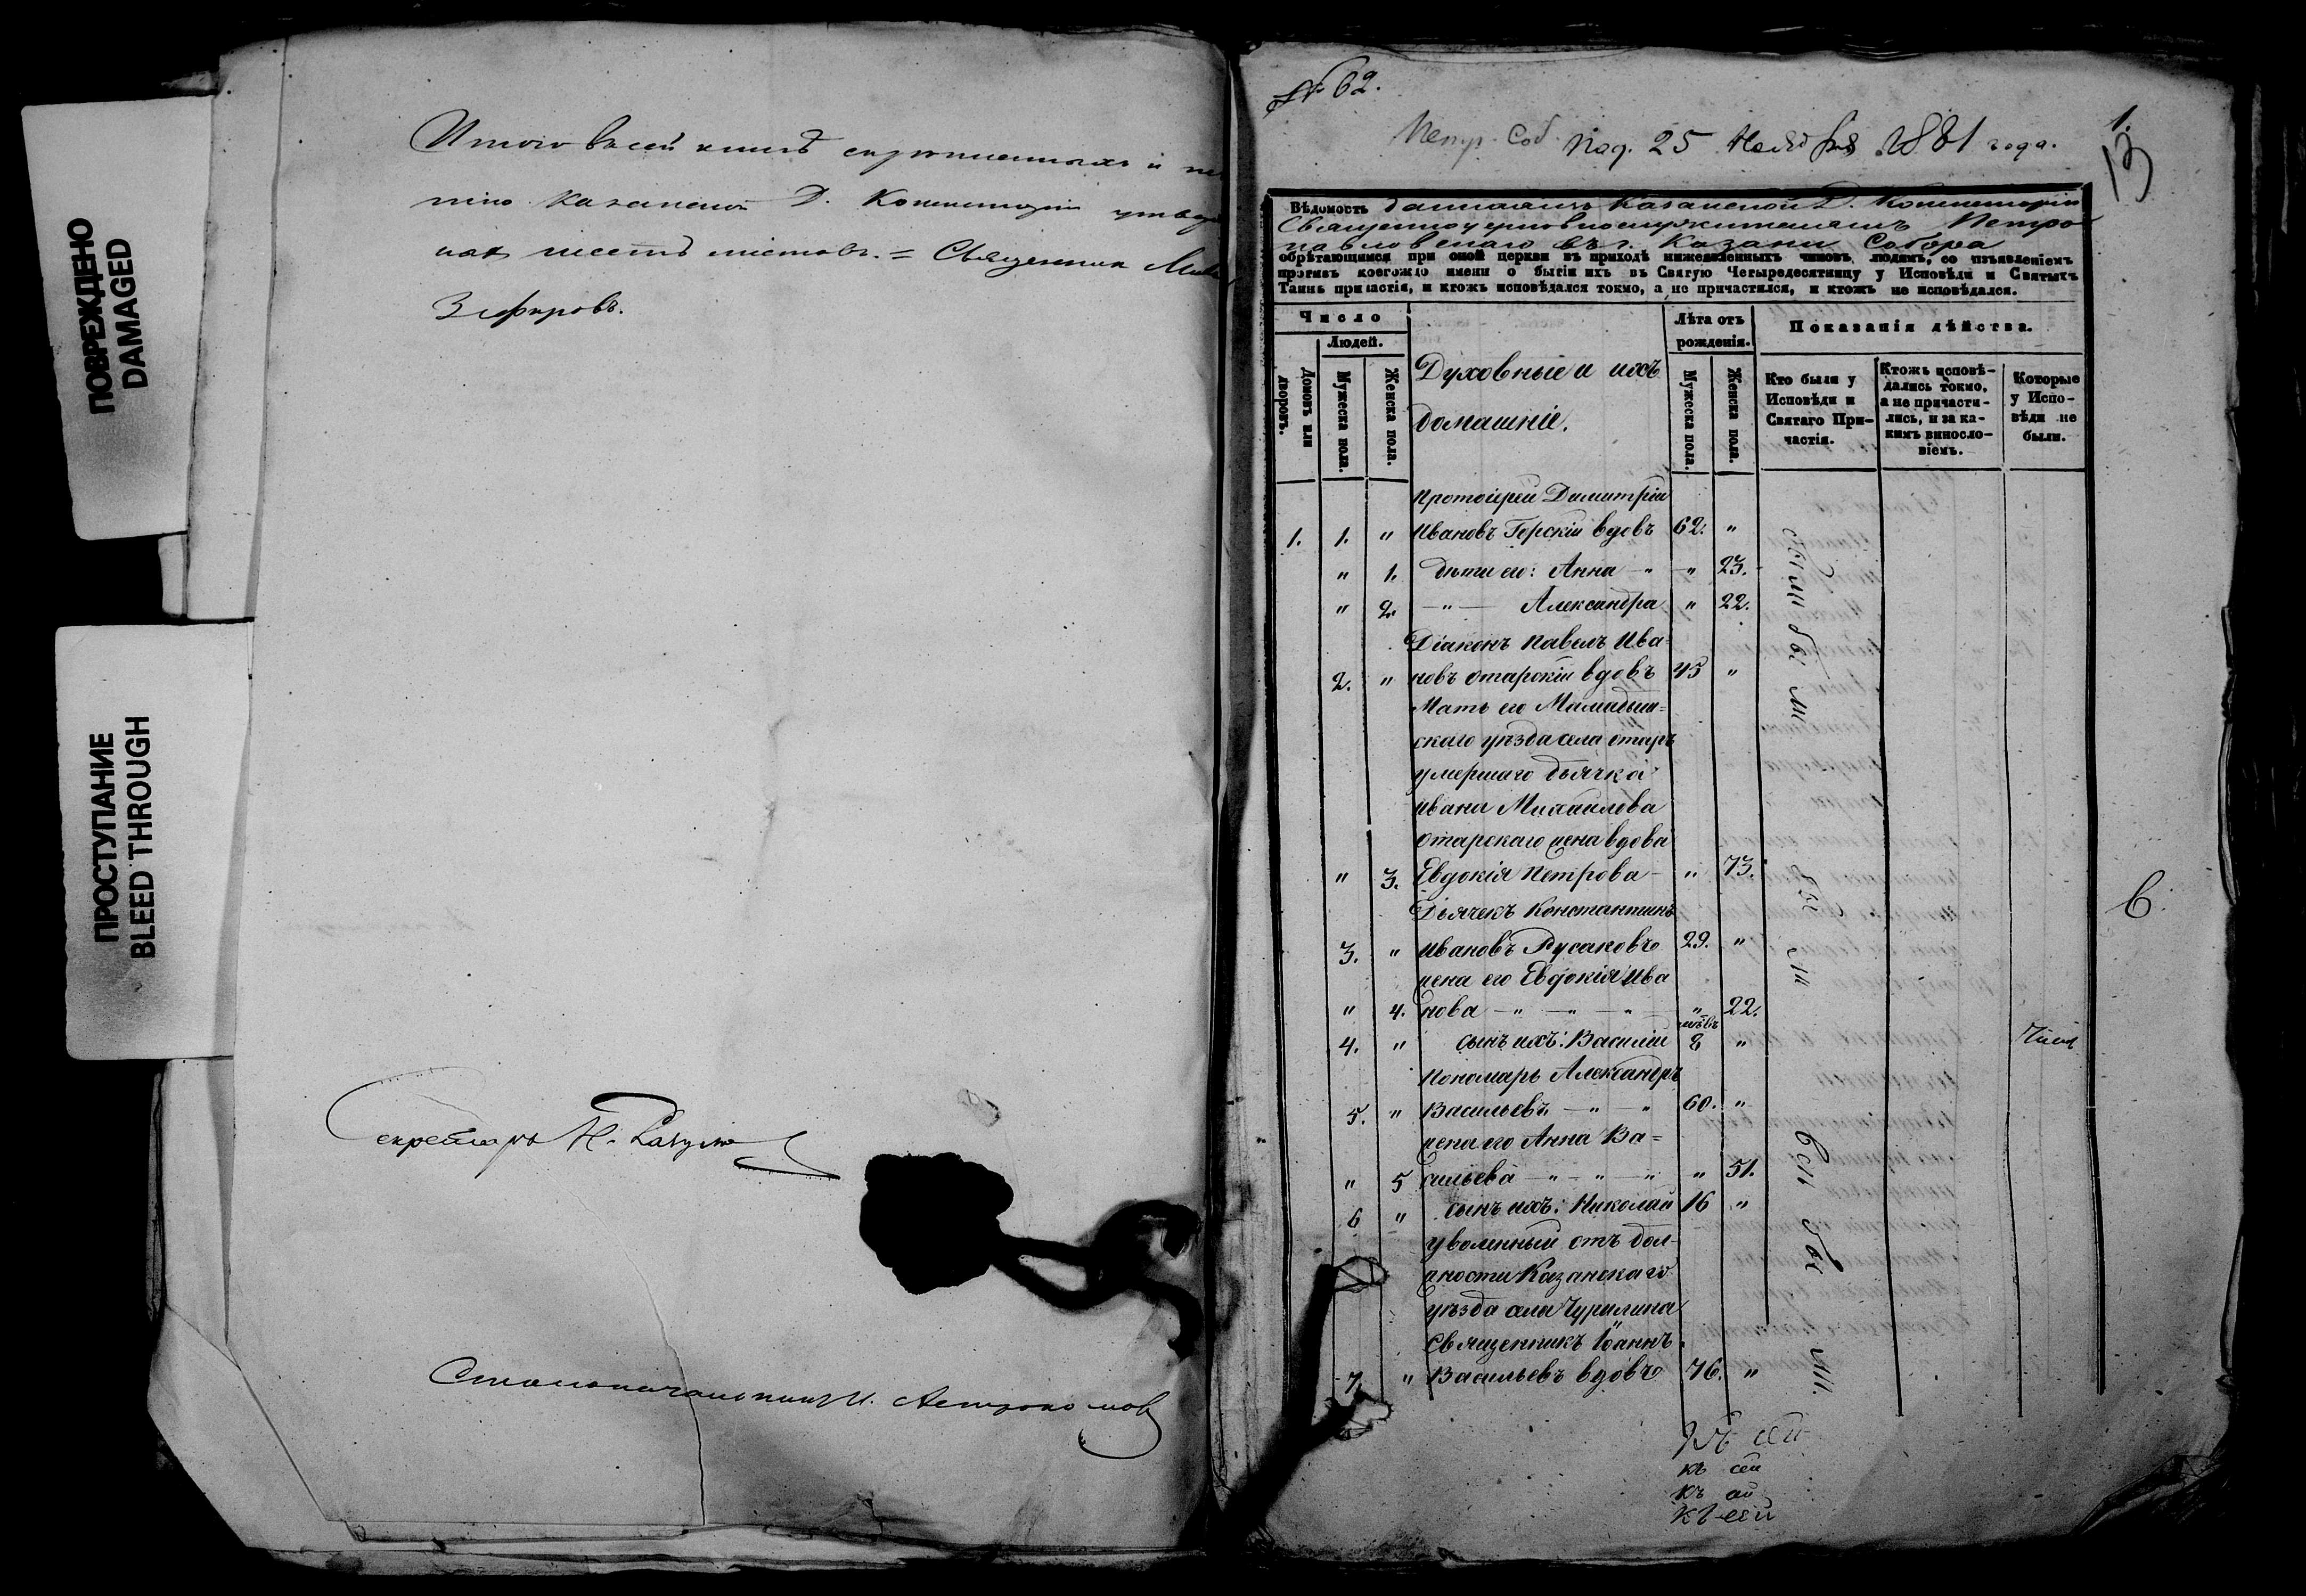 ПОВРЕЖДЕНО
DAMAGED
ПРОСТУПАНИЕ
BLEED THROUGH
Итого в сей книгѣ скрѣпленныхъ и
Казанской Д. Консисторіи
шесть листовъ. = Священникъ
Зефировъ.
Секретарь Н.
Столоначальникъ И. Астрономовъ
№ 62.
Петр. Соб. Под. 25 Ноября 1881 года.
1.
13
Вѣдомость данная изъ Казанской Д. Консисторіи
Священноцерковнослужителямъ Петро-
павловскаго въ г. Казани Собора
обрѣтающимся при оной церкви въ приходѣ нижеявленныхъ чиновъ людямъ, со изъявленіемъ
противъ коегождо имени о бытіи ихъ въ Святую Четыредесятницу у Исповѣди и Святыхъ
Таинъ причастія, и ктожъ исповѣдался токмо, а не причастился, и ктожъ не исповѣдался.
Число
Людей.
Домовъ или дворовъ.
Мужеска пола.
Женска пола.
Духовные и ихъ
домашніе.
Лѣта отъ
рожденія.
Мужеска пола.
Женска пола.
Показанія дѣйства.
Кто были у
Исповѣди и
Святаго При-
частія.
Ктожъ исповѣ-
дались токмо,
а не причасти-
лись, и за ка-
кимъ винословіемъ.
Которые
у Испо-
вѣди не
были.
Протоіерей Димитрій
1. 1. " Ивановъ Горскій вдовъ 62. "
" 1. дѣти его: Анна - " - " 23.
" 2. - " - Александра " 22.
Діаконъ Павелъ Ива-
2. " новъ Отарскій вдовъ 45 "
Мать его Мамадыш=
скаго уѣзда села Отаръ
умершаго дьячка
Ивана Михаилова
Отарскаго жена вдова
" 3. Евдокія Петрова - " 73.
Дьячекъ Константинъ
3. " Ивановъ Русановъ 29. "
жена его Евдокія Ива
" 4. нова - " - " - " 22.
4. " сынъ ихъ: Василій 8 "
Пономарь Александръ
5. " Васильевъ - " - " 60. "
жена его Анна Ва=
" 5 сильева - " - " - " " 51.
6 " сынъ ихъ: Николай 16 "
уволенный отъ дол-
жности Казанскаго
уѣзда села Чурилина
Священникъ Іоаннъ
7. " Васильевъ вдовъ 76. "
бы
бы
къ сей
къ сей
къ
къ сей